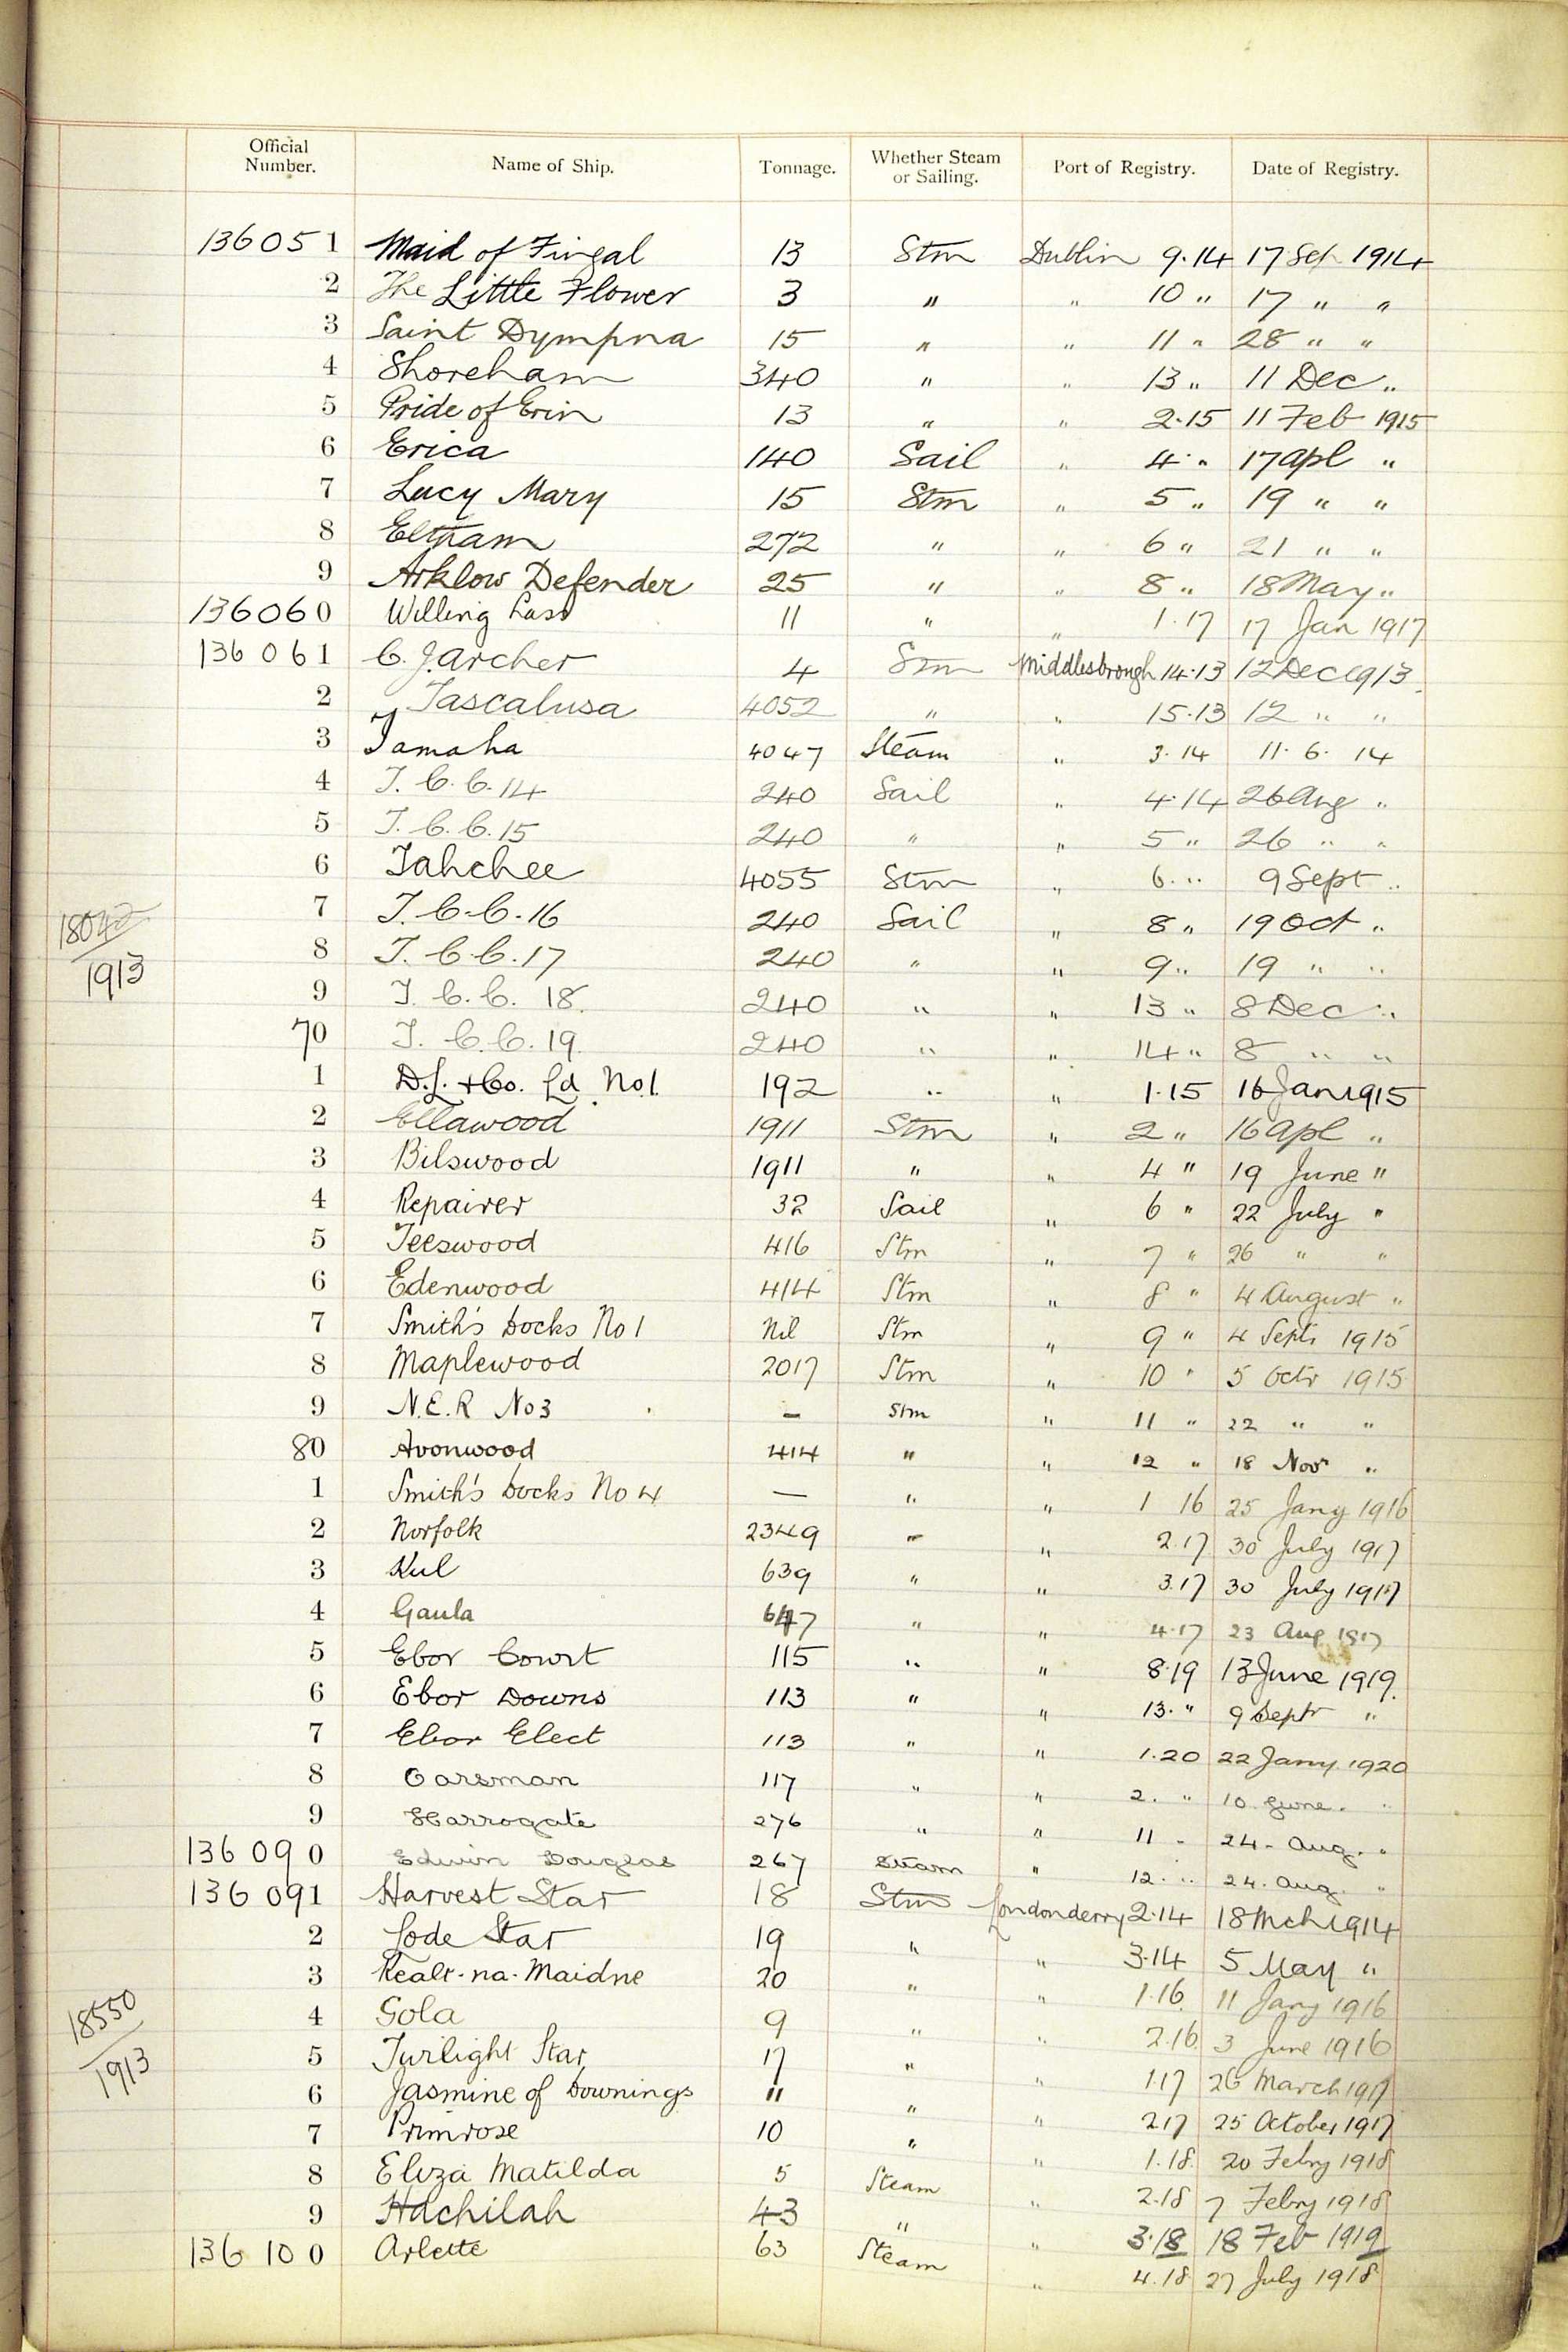 Official Number. Name of Ship. Tonnage. Whether Steam or Sailing. Port of Registry. Date of Registry.
136051 Maid of Fingal 13 Stm Dublin 9.14 17 Sep 1914
2 The Little Flower 3 " " 10 " 17 " "
3 Saint Dympna 15 " " 11 " 28 " "
4 Shoreham 340 " " 13 " 11 Dec "
5 Pride of Erin 13 " " 2.15 11 Feb 1915
6 Erica 140 Sail " 4 " 17 Apl "
7 Lucy Mary 15 Stm " 5 " 19 " "
8 Eltham 272 " " 6 " 21 " "
9 Arklow Defender 25 " " 8 " 18 May "
136060 Willing Lass 11 " " 1.17 17 Jan 1917
136061 C. J. Archer 4 Stm Middlesbrough 14.13 12 Dec 1913
2 Tascalusa 4052 " " 15.13 12 " "
3 Tamaha 4047 Steam " 3.14 11.6.14
4 T.C.C.14 240 Sail " 4.14 26 Aug "
5 T.C.C.15 240 " " 5 " 26 " "
6 Tahchee 4055 Stm " 6 " 9 Sept "
7 T.C.C.16 240 Sail " 8 " 19 Oct "
18042
1913
8 T.C.C.17 240 " " 9 " 19 " "
9 T.C.C. 18. 240 " " 13 " 8 Dec "
70 T.C.C.19. 240 " " 14 " 8 " "
1 D.L. & Co. Ld. No 1. 192 " " 1.15 16 Jan 1915
2 Ellawood 1911 Stm " 2 " 16 Apl "
3 Bilswood 1911 " " 4 " 19 June "
4 Repairer 32 Sail " 6 " 22 July "
5 Teeswood 416 Stm " 7 " 26 " "
6 Edenwood 414 Stm " 8 " 4 August "
7 Smith's Docks No 1 Nil Stm " 9 " 4 Septr 1915
8 Maplewood 2017 Stm " 10 " 5 Octr 1915
9 N.E.R No 3 - Stm " 11 " 22 " "
80 Avonwood 414 " " 12 " 18 Novr "
1 Smith's Docks No 4 — " " 1 16 25 Jany 1916
2 Norfolk 2349 " " 2.17 30 July 1917
3 Kul 639 " " 3.17 30 July 1917
4 Gaula 647 " " 4.17 23 Aug 1917
5 Ebor Court 115 " " 8.19 13 June 1919.
6 Ebor Downs 113 " " 13. " 9 Septr "
7 Ebor Elect 113 " " 1.20 22 Jany. 1920
8 Oarsman 117 " " 2. " 10 June. "
9 Harrogate 276 " " 11 " 24. Aug. "
136090 Edwin Douglas 267 Steam " 12. " 24. Aug. "
136091 Harvest Star 18 Stm Londonderry 2.14 18 Mch 1914
2 Lode Star 19 " " 3.14 5 May "
3 Realt-na-Maidne 20 " " 1.16. 11 Jany 1916
18550
1913
4 Gola 9 " " 2.16. 3 June 1916
5 Twilight Star 17 " " 1.17 26 March 1917
6 Jasmine of Downings " " " 2.17 25 October 1917
7 Primrose 10 " " 1.18. 20 Febry 1918
8 Eliza Matilda 5 Steam " 2.18 7 Febry 1918
9 Hachilah 43 " " 3.18 18 Feb 1919
136100 Arlette 63 Steam " 4.18 27 July 1918